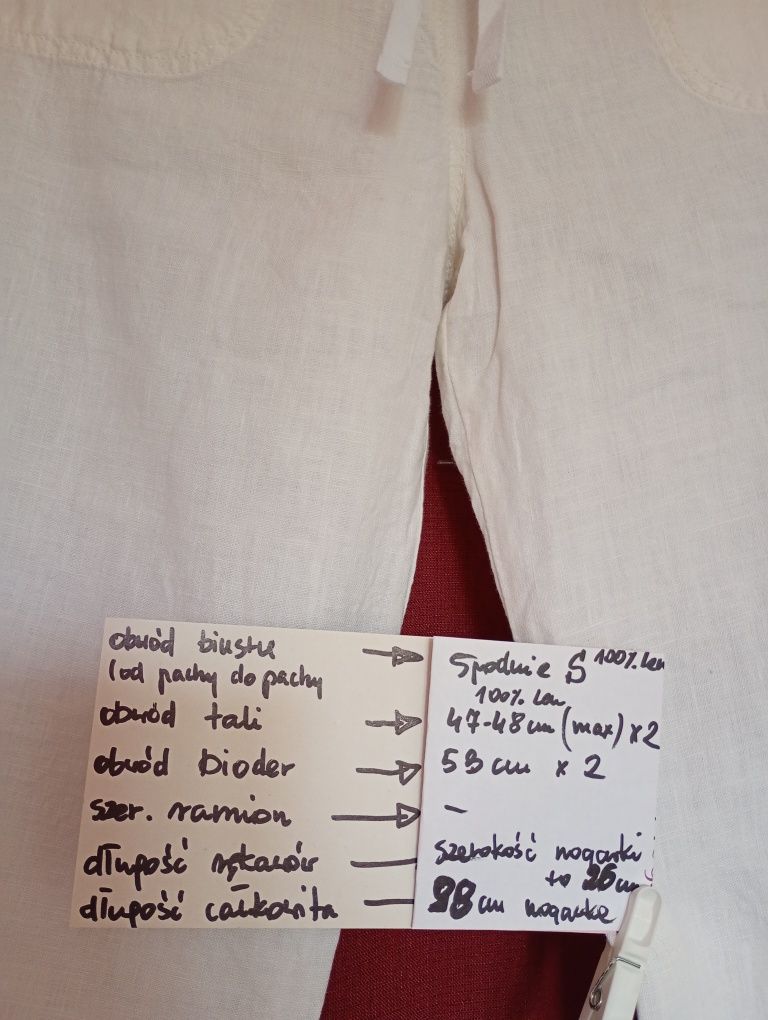 obwód biustu → Spodnie S 100% len
(od pachy do pachy 100% len
obwód tali → 47-48 cm (max) x2
obwód bioder → 53 cm x 2
szer. ramion → –
długość rękawów — szerokość nogawki
to 26 cm
długość całkowita — 98 cm nogawka